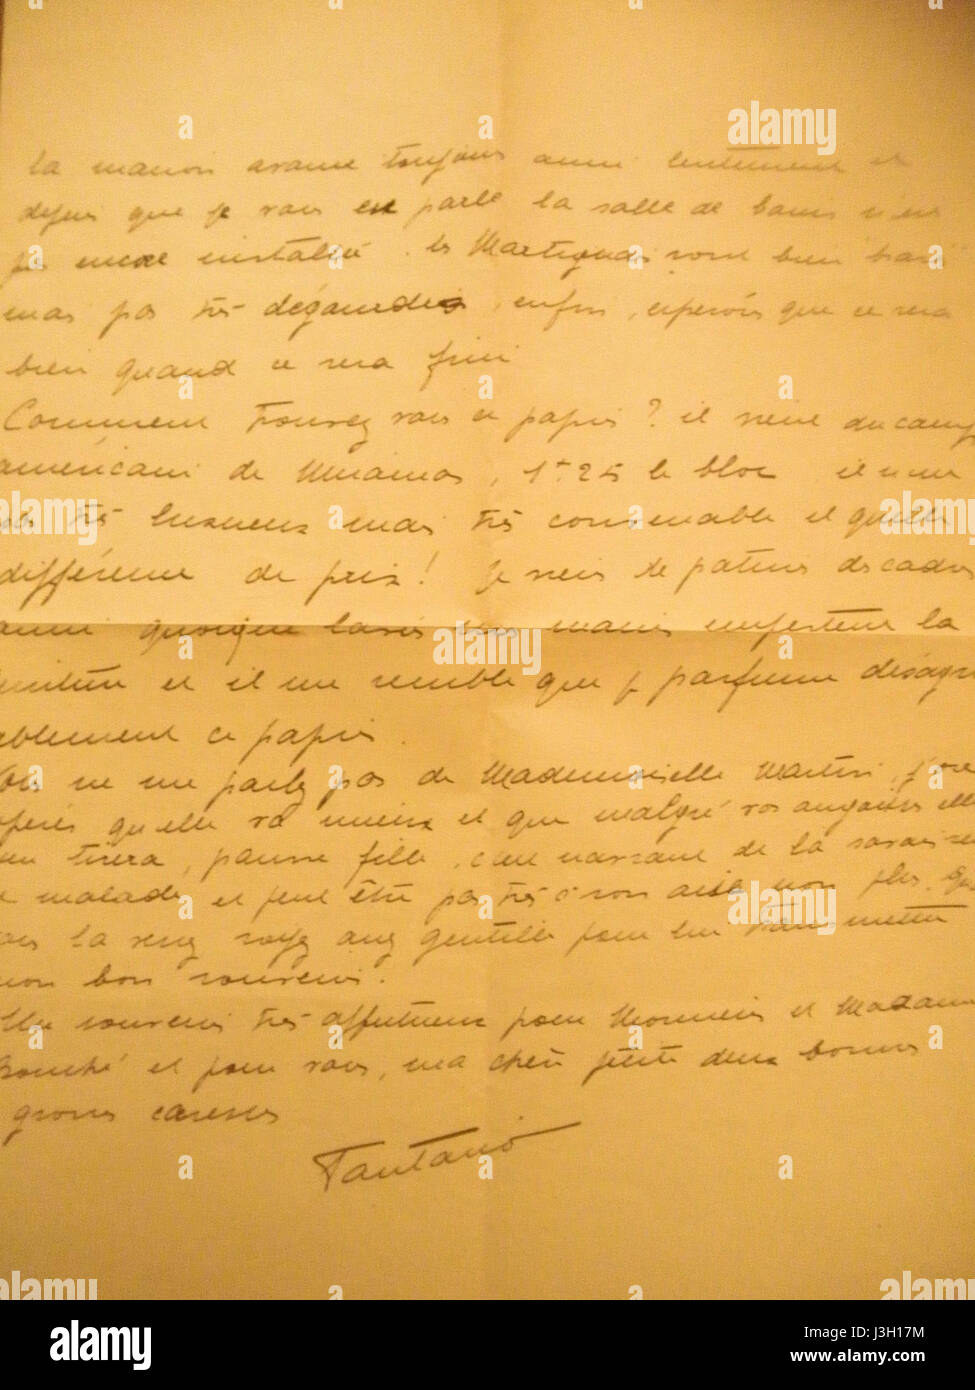 La maison avance toujours aussi lentement et
depuis que je vous en parle la salle de bains n'est
pas encore installée. Les Martigues sont bien
mais pas très dégourdis, enfin, espérons que ce sera
bien quand ce sera fini
Comment trouvez vous ce papier? il vient du camp
américain de Miramas, 1f 25 le bloc il n'est
pas très luxueux mais très convenable et quelle
différence de prix! Je viens de
aussi quoique lavées mes mains empestent la
et il me semble que je parfume désagré
ablement ce papier.
Vous ne me parlez pas de Mademoiselle Martin, j'ose
espérer qu'elle va mieux et que malgré vos angoisses elle
s'en tirera, pauvre fille, c'est navrant de la savoir
malade et peut être pas très à son aise non plus. Si
vous la voyez soyez assez gentille pour lui transmettre
mon bon souvenir.
Un souvenir très affectueux pour Monsieur et Madame
et pour vous, ma chère petite deux bonnes
grosses caresses
Tantanio
alamy
alamy
alamy
alamy
alamy
alamy
Image ID: J3H17M
www.alamy.com